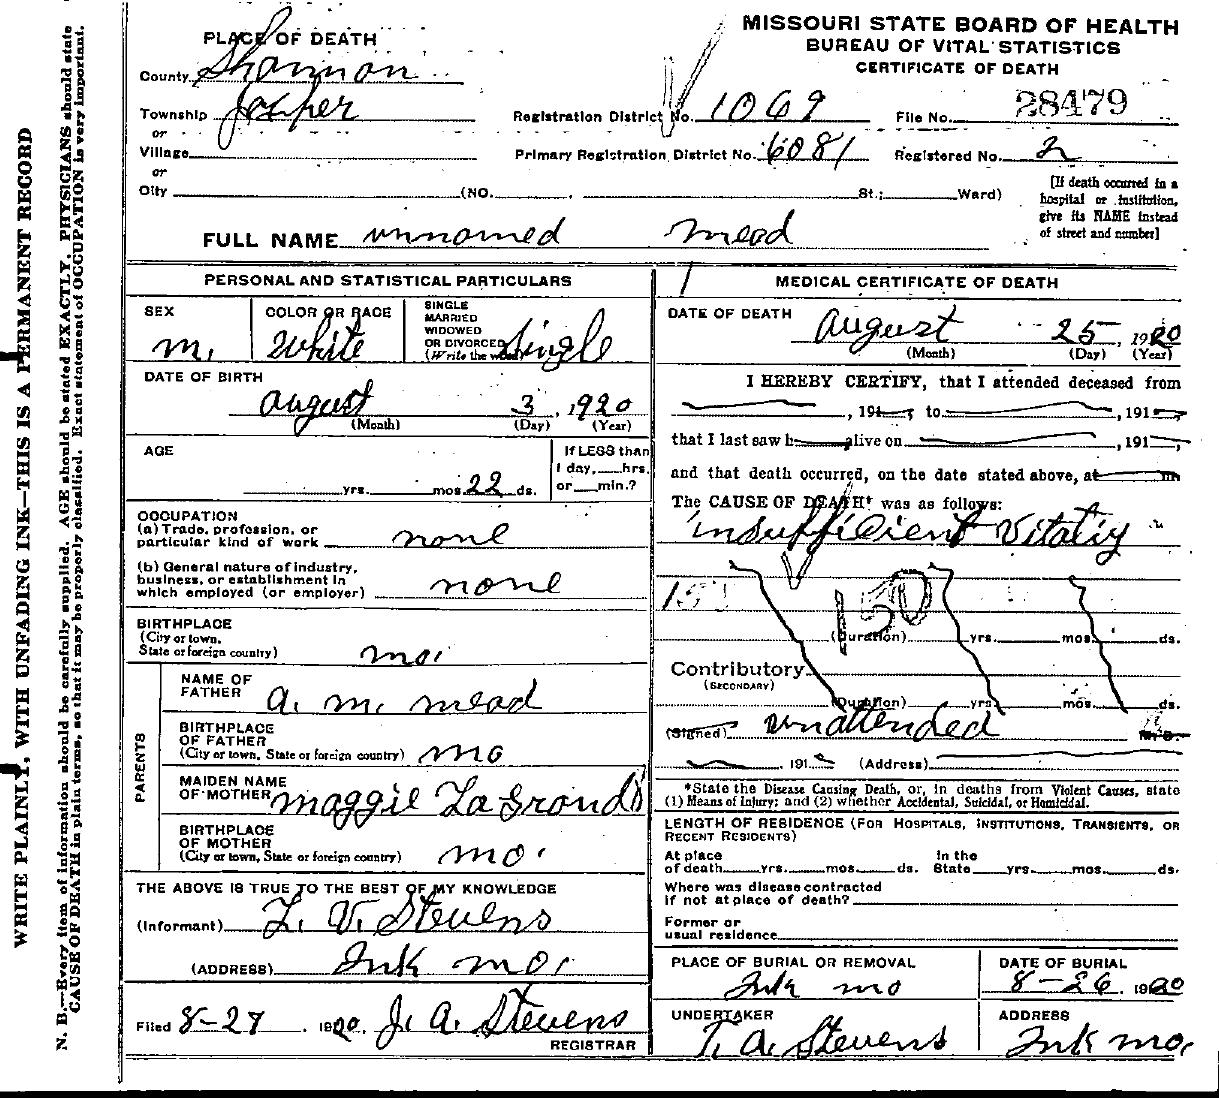 MISSOURI STATE BOARD OF HEALTH
BUREAU OF VITAL STATISTICS
CERTIFICATE OF DEATH
PLACE OF DEATH
County Shannon
Township Jasper
or
Village
or
City (NO. St.; Ward)
Registration District No. 1069 File No. 28479
Primary Registration District No. 6081 Registered No. 2
[If death occurred in a
hospital or institution,
give its NAME instead
of street and number]
FULL NAME unnamed Mead
PERSONAL AND STATISTICAL PARTICULARS
SEX
m.
COLOR OR RACE
White
SINGLE
MARRIED
WIDOWED
OR DIVORCED
(Write the word) Single
DATE OF BIRTH
August 3, 1920
(Month) (Day) (Year)
AGE
yrs. mos. 22 ds.
If LESS than
1 day, hrs.
or min.?
OCCUPATION
(a) Trade, profession, or
particular kind of work none
(b) General nature of industry,
business, or establishment in
which employed (or employer) none
BIRTHPLACE
(City or town,
State or foreign country) mo.
PARENTS
NAME OF
FATHER a. m. mead
BIRTHPLACE
OF FATHER
(City or town, State or foreign country) mo
MAIDEN NAME
OF MOTHER maggie
BIRTHPLACE
OF MOTHER
(City or town, State or foreign country) mo.
THE ABOVE IS TRUE TO THE BEST OF MY KNOWLEDGE
(Informant) L. V. Stevens
(ADDRESS) Ink mo.
Filed 8-27, 1920, J. A. Stevens
REGISTRAR
MEDICAL CERTIFICATE OF DEATH
DATE OF DEATH August 25, 1920
(Month) (Day) (Year)
I HEREBY CERTIFY, that I attended deceased from
, 191 , to , 191 ,
that I last saw h alive on , 191 ,
and that death occurred, on the date stated above, at m
The CAUSE OF DEATH* was as follows:
insufficient Vitality
151 150
(Duration) yrs. mos. ds.
Contributory
(SECONDARY)
(Duration) yrs. mos. ds.
(Signed) unattended M. D.
, 191 (Address)
*State the Disease Causing Death, or, in deaths from Violent Causes, state
(1) Means of Injury; and (2) whether Accidental, Suicidal, or Homicidal.
LENGTH OF RESIDENCE (FOR HOSPITALS, INSTITUTIONS, TRANSIENTS, OR
RECENT RESIDENTS)
At place In the
of death yrs. mos. ds. State yrs. mos. ds.
Where was disease contracted
if not at place of death?
Former or
usual residence
PLACE OF BURIAL OR REMOVAL
Ink mo
DATE OF BURIAL
8-26, 1920
UNDERTAKER
T. A. Stevens
ADDRESS
Ink mo.
WRITE PLAINLY, WITH UNFADING INK—THIS IS A PERMANENT RECORD
N. B.—Every item of information should be carefully supplied. AGE should be stated EXACTLY. PHYSICIANS should state
CAUSE OF DEATH in plain terms, so that it may be properly classified. Exact statement of OCCUPATION is very important.